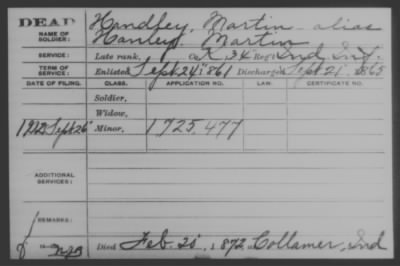 DEAD
NAME OF SOLDIER: Handley, Martin alias
Hanley, Martin
SERVICE: Late rank, Co. K, 34" Reg't Ind Inf.
TERM OF SERVICE: Enlisted Sept 24" 1861 Discharged Sept 21" 1865
DATE OF FILING. CLASS. APPLICATION NO. LAW. CERTIFICATE NO.
Soldier,
Widow,
1912 Sept 26" Minor, 1725,477
ADDITIONAL SERVICES:
REMARKS:
Died Feb. 20", 1872, Collamer, Ind